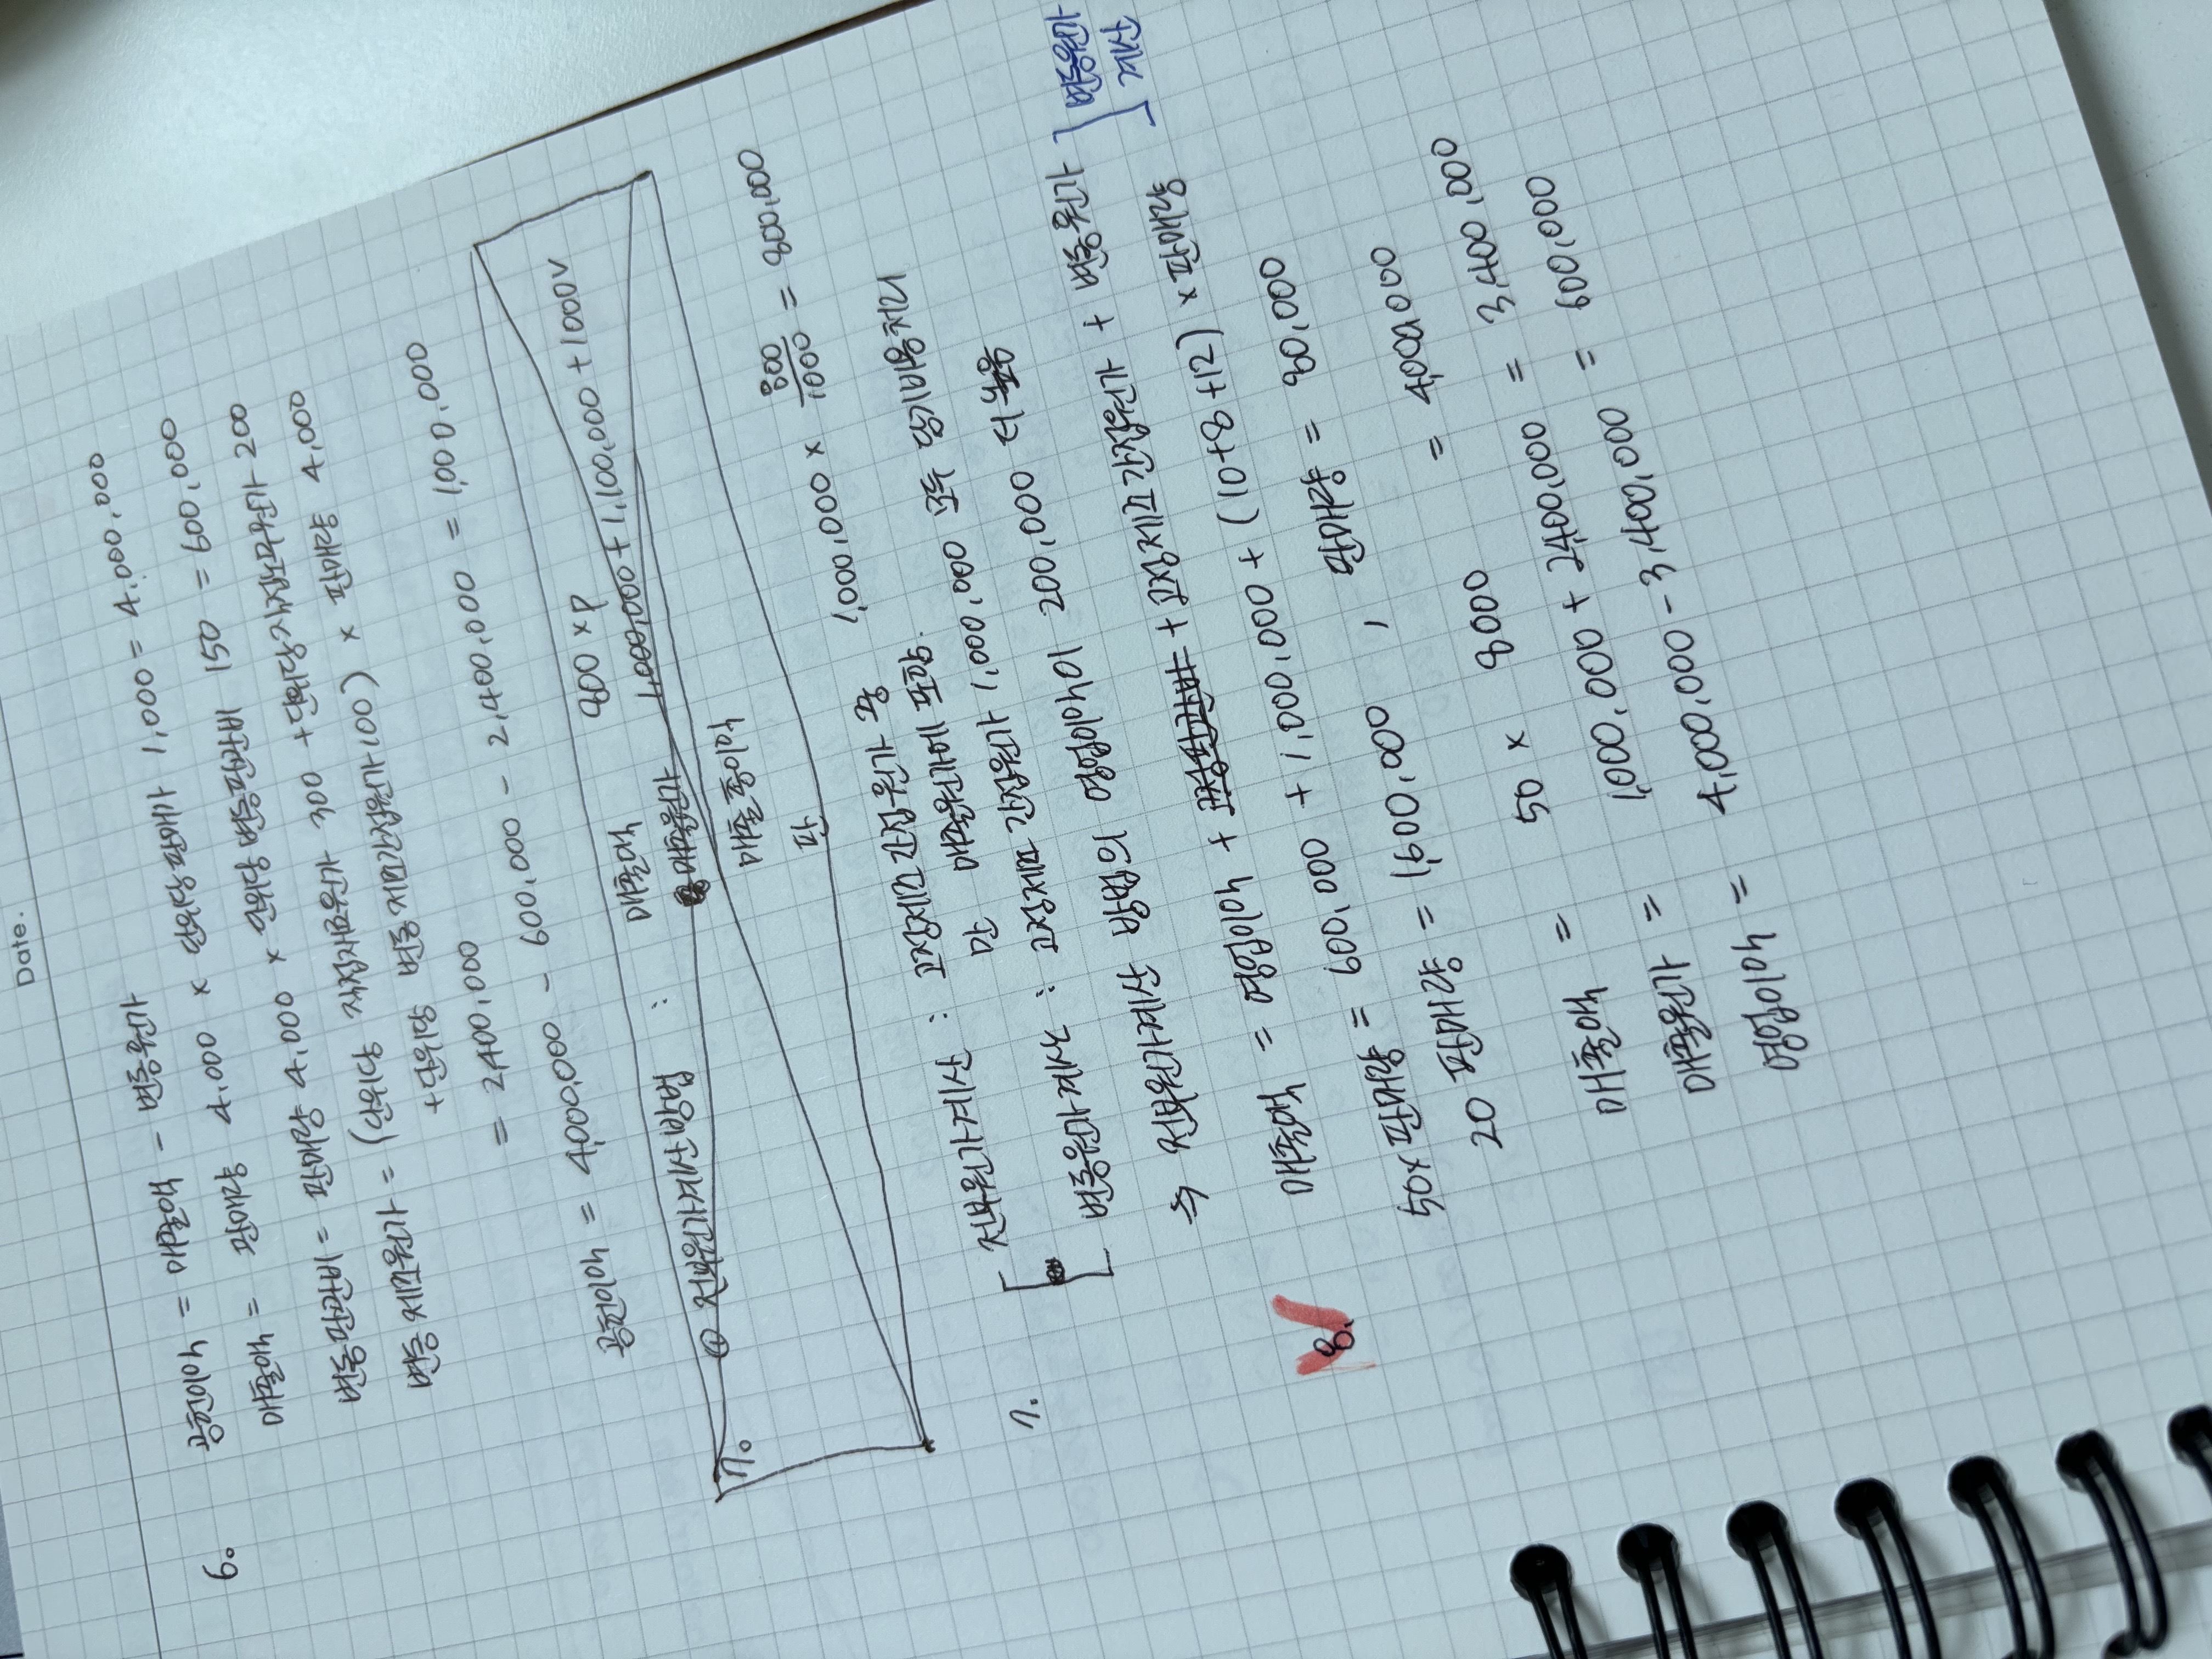 Date.
6. 공헌이익 = 매출액 - 변동원가
매출액 = 판매량 4,000 × 단위당 판매가 1,000 = 4,000,000
변동판관비 = 판매량 4,000 × 단위당 변동판관비 150 = 600,000
변동제조원가 = (단위당 직접재료원가 300 + 단위당 직접노무원가 200
+ 단위당 변동제조간접원가 100) × 판매량 4,000
= 2,400,000
공헌이익 = 4,000,000 - 600,000 - 2,400,000 = 1,000,000
7. ① 전부원가계산방법 : 매출액 800 × p
매출원가 1,000,000 + 1,100,000 + 1000v
매출총이익
판
7. 전부원가계산 : 고정제조간접원가 중 1,000,000 × 800/1000 = 800,000
만 매출원가에 포함.
변동원가계산 : 고정제조간접원가 1,000,000 모두 당기비용처리
⇒ 전부원가계산 방법의 영업이익이 200,000 더 높음
8. 매출액 = 영업이익 + 고정판관비 + 고정제조간접원가 + 변동원가 변동원가
50× 판매량 = 600,000 + 1,000,000 + (10+8+12) × 판매량 계산
20 판매량 = 1,600,000 , 판매량 = 80,000
매출액 = 50 × 8000 = 4,000,000
매출원가 = 1,000,000 + 2,400,000 = 3,400,000
영업이익 = 4,000,000 - 3,400,000 = 600,000